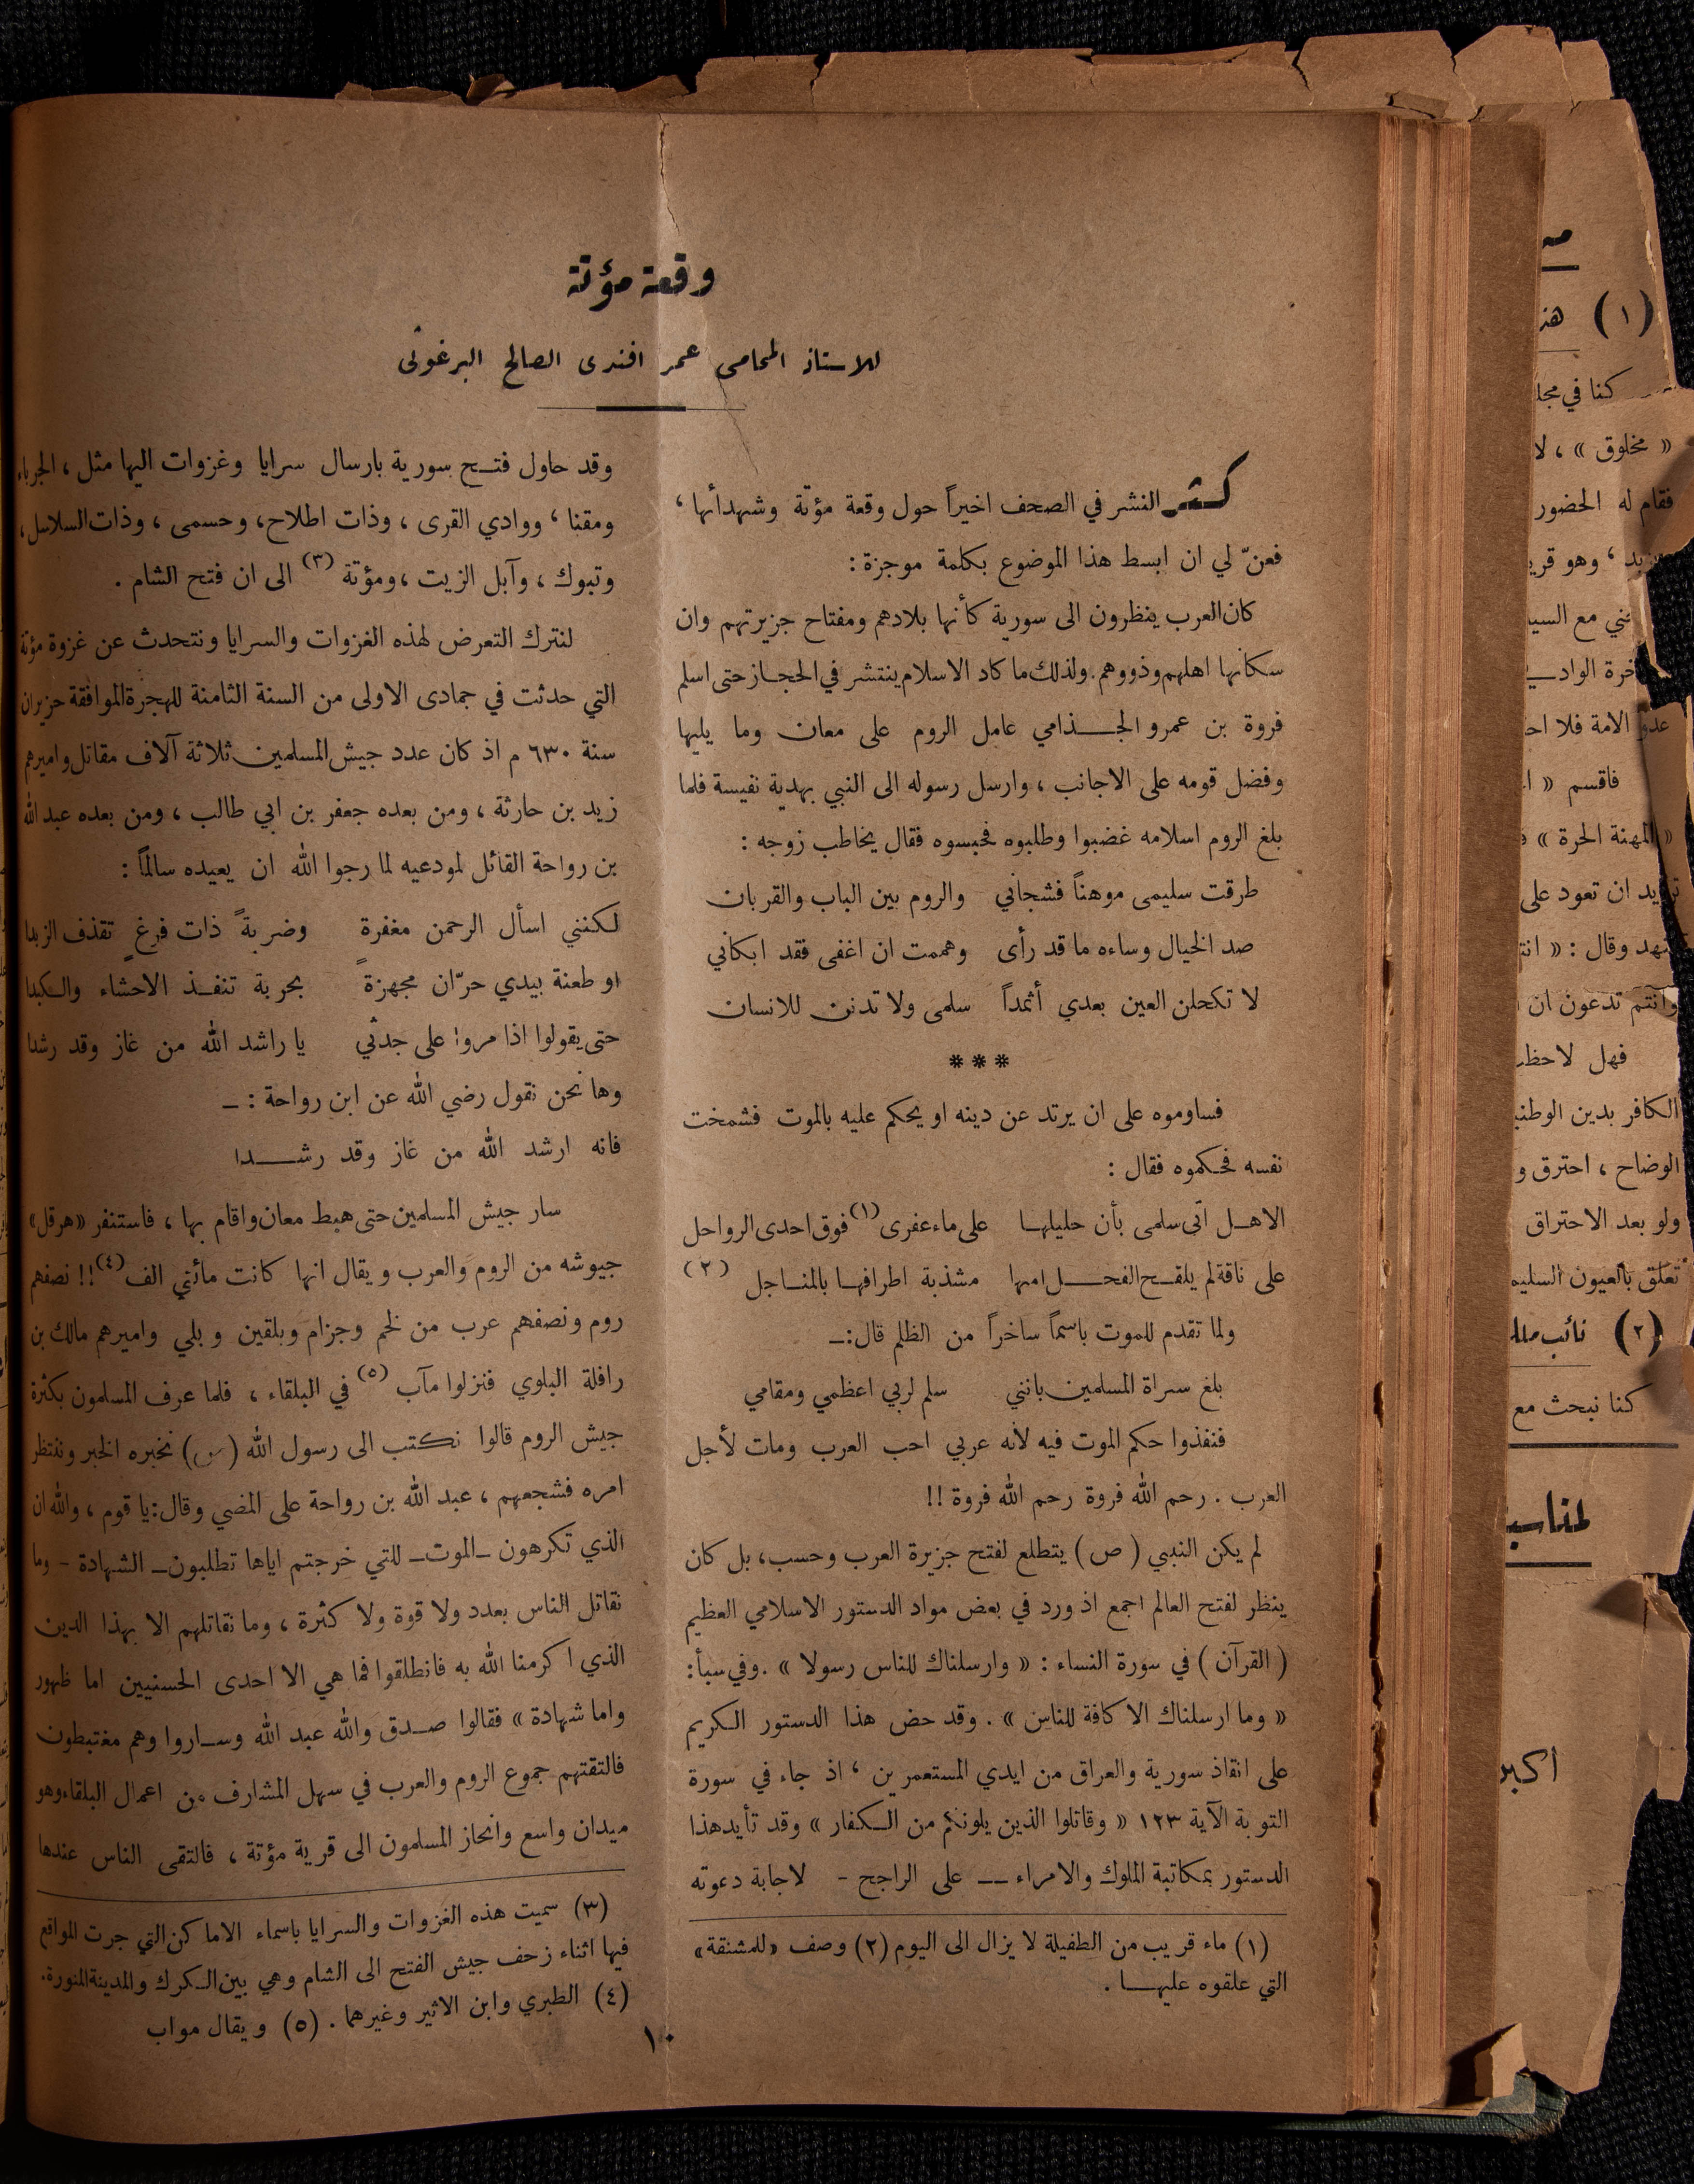 وقعة مؤتة
للاستاذ المحامي عمر افندي الصالح البرغوثي
كثر النشر في الصحف اخيراً حول وقعة مؤتة وشهدائها ،
فعنّ لي ان ابسط هذا الموضوع بكلمة موجزة :
كان العرب ينظرون الى سورية كأنها بلادهم ومفتاح جزيرتهم وان
سكانها اهلهم وذووهم . ولذلك ما كاد الاسلام ينتشر في الحجاز حتى اسلم
فروة بن عمرو الجذامي عامل الروم على معان وما يليها
وفضل قومه على الاجانب ، وارسل رسوله الى النبي بهدية نفيسة فلما
بلغ الروم اسلامه غضبوا وطلبوه فحبسوه فقال يخاطب زوجه :
طرقت سليمى موهناً فشجاني والروم بين الباب والقربان
صد الخيال وساءه ما قد رأى وهممت ان اغفى فقد ابكاني
لا تكحلن العين بعدي أثمداً سلمى ولا تدنن للانسان
***
فساوموه على ان يرتد عن دينه او يحكم عليه بالموت فشمخت
نفسه فحكموه فقال :
الا هل اتى سلمى بأن حليلها على ماء عفرى (١) فوق احدى الرواحل
على ناقة لم يلقح الفحل امها مشذبة اطرافها بالمناجل (٢)
ولما تقدم للموت باسماً ساخراً من الظلم قال :ـ
بلغ سراة المسلمين بانني سلم لربي اعظمي ومقامي
فنفذوا حكم الموت فيه لأنه عربي احب العرب ومات لأجل
العرب . رحم الله فروة رحم الله فروة !!
لم يكن النبي ( ص ) يتطلع لفتح جزيرة العرب وحسب ، بل كان
ينظر لفتح العالم اجمع اذ ورد في بعض مواد الدستور الاسلامي العظيم
( القرآن ) في سورة النساء : « وارسلناك للناس رسولا » . وفي سبأ :
« وما ارسلناك الا كافة للناس » . وقد حض هذا الدستور الكريم
على انقاذ سورية والعراق من ايدي المستعمرين ، اذ جاء في سورة
التوبة الآية ١٢٣ « وقاتلوا الذين يلونكم من الكفار » وقد تأيد هذا
الدستور بمكاتبة الملوك والامراء ـــ على الراجح - لاجابة دعوته
(١) ماء قريب من الطفيلة لا يزال الى اليوم (٢) وصف «للمشنقة»
التي علقوه عليها .
وقد حاول فتح سورية بارسال سرايا وغزوات اليها مثل ، الجرباء
ومقنا ، ووادي القرى ، وذات اطلاح ، وحسمى ، وذات السلاسل ،
وتبوك ، وآبل الزيت ، ومؤتة (٣) الى ان فتح الشام .
لنترك التعرض لهذه الغزوات والسرايا ونتحدث عن غزوة مؤتة
التي حدثت في جمادى الاولى من السنة الثامنة للهجرة الموافقة حزيران
سنة ٦٣٠ م اذ كان عدد جيش المسلمين ثلاثة آلاف مقاتل واميرهم
زيد بن حارثة ، ومن بعده جعفر بن ابي طالب ، ومن بعده عبد الله
بن رواحة القائل لمودعيه لما رجوا الله ان يعيده سالماً :
لكنني اسأل الرحمن مغفرة وضربةً ذات فرغٍ تقذف الزبدا
او طعنة بيدي حرّان مجهزةً بحربة تنفذ الاحشاء والكبدا
حتى يقولوا اذا مروا على جدثي يا راشد الله من غاز وقد رشدا
وها نحن نقول رضي الله عن ابن رواحة : ـ
فانه ارشد الله من غاز وقد رشدا
سار جيش المسلمين حتى هبط معان واقام بها ، فاستنفر «هرقل»
جيوشه من الروم والعرب ويقال انها كانت مائتي الف (٤) !! نصفهم
روم ونصفهم عرب من لخم وجزام وبلقين وبلي واميرهم مالك بن
رافلة البلوي فنزلوا مآب (٥) في البلقاء ، فلما عرف المسلمون بكثرة
جيش الروم قالوا نكتب الى رسول الله (ص) نخبره الخبر وننتظر
امره فشجعهم ، عبد الله بن رواحة على المضي وقال : يا قوم ، والله ان
الذي تكرهون ـ الموت ـ للتي خرجتم اياها تطلبون ـ الشهادة - وما
نقاتل الناس بعدد ولا قوة ولا كثرة ، وما نقاتلهم الا بهذا الدين
الذي اكرمنا الله به فانطلقوا فما هي الا احدى الحسنيين اما ظهور
واما شهادة » فقالوا صدق والله عبد الله وساروا وهم مغتبطون
فالتقتهم جموع الروم والعرب في سهل المشارف من اعمال البلقاء وهو
ميدان واسع وانحاز المسلمون الى قرية مؤتة ، فالتقى الناس عندها
(٣) سميت هذه الغزوات والسرايا باسماء الاماكن التي جرت المواقع
فيها اثناء زحف جيش الفتح الى الشام وهي بين الكرك والمدينة المنورة .
(٤) الطبري وابن الاثير وغيرهما . (٥) ويقال مواب
١٠
(١)
كنا في
« مخلوق » ، لا
فقام له الحضور
، وهو
مع
عدو الامة فلا
فاقسم «
« المهنة الحرة »
ان تعود على
وقال : «
وانتم تدعون ان
فهل
الكافر بدين
الوضاح ، احترق و
ولو بعد الاحتراق
تعلق بالعيون
(٢) نائب
كنا نبحث مع